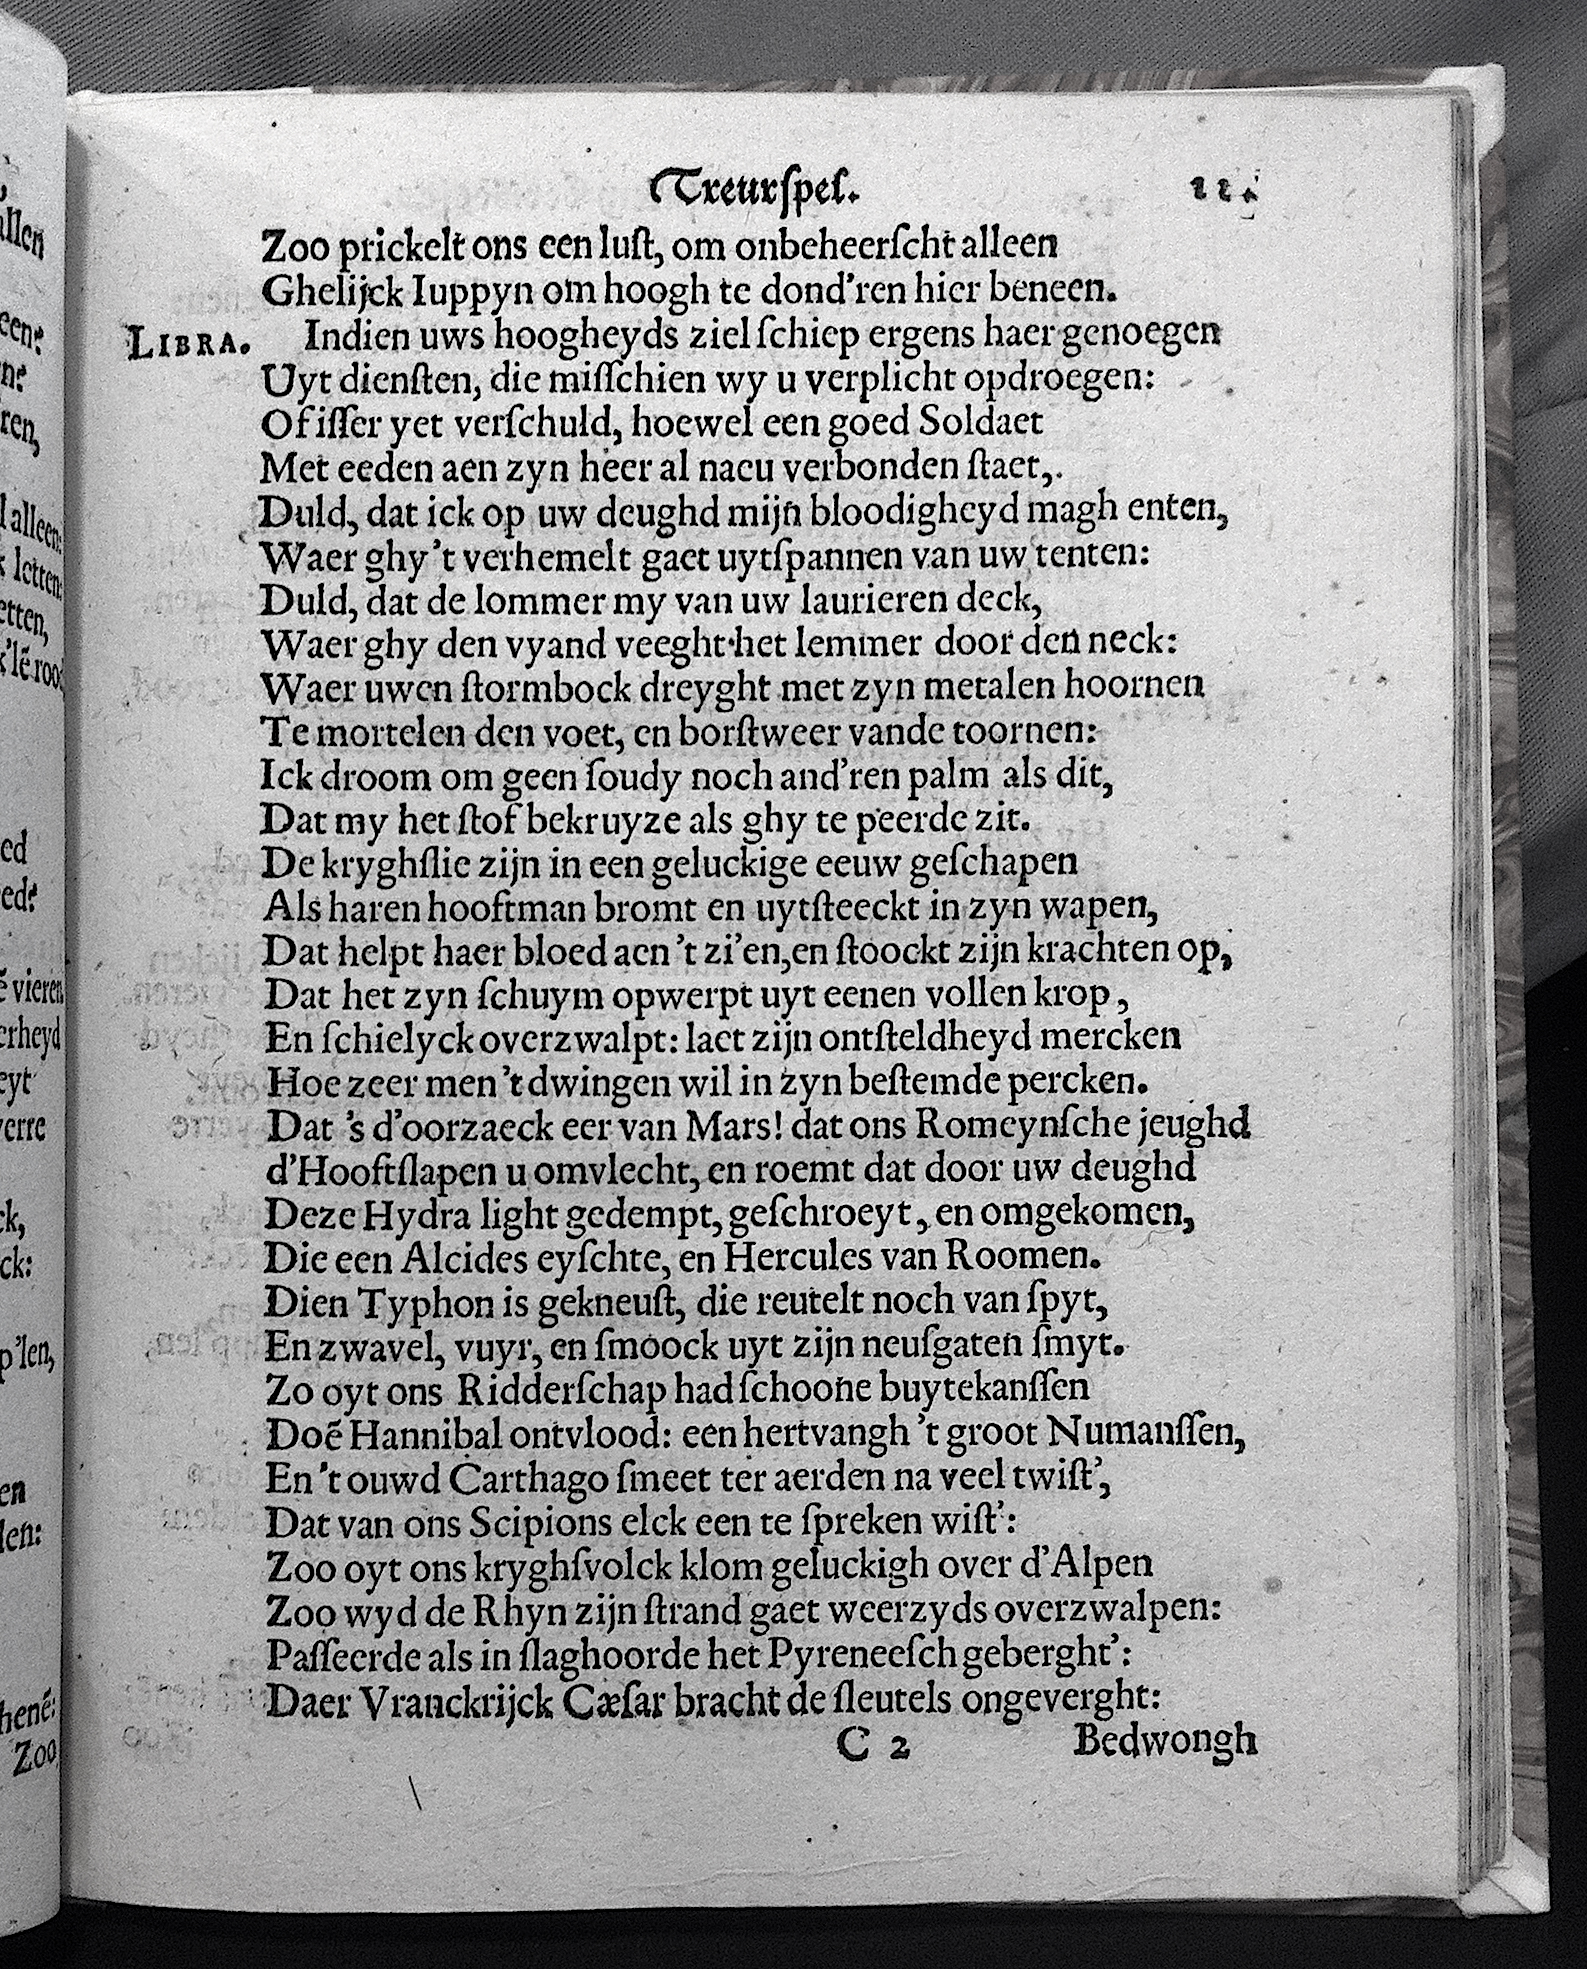 Treurſpel. 11.
Zoo prickelt ons een luſt, om onbeheerſcht alleen
Ghelijck Iuppyn om hoogh te dond'ren hier beneen.
LIBRA. Indien uws hoogheyds ziel ſchiep ergens haer genoegen
Uyt dienſten, die miſſchien wy u verplicht opdroegen:
Of iſſer yet verſchuld, hoewel een goed Soldaet
Met eeden aen zyn heer al naeu verbonden ſtaet,.
Duld, dat ick op uw deughd mijn bloodigheyd magh enten,
Waer ghy 't verhemelt gaet uytſpannen van uw tenten:
Duld, dat de lommer my van uw laurieren deck,
Waer ghy den vyand veeght het lemmer door den neck:
Waer uwen ſtormbock dreyght met zyn metalen hoornen
Te mortelen den voet, en borſtweer vande toornen:
Ick droom om geen ſoudy noch and'ren palm als dit,
Dat my het ſtof bekruyze als ghy te peerde zit.
De kryghſlie zijn in een geluckige eeuw geſchapen
Als haren hooftman bromt en uytſteeckt in zyn wapen,
Dat helpt haer bloed aen 't zi'en, en ſtoockt zijn krachten op,
Dat het zyn ſchuym opwerpt uyt eenen vollen krop,
En ſchielyck overzwalpt: laet zijn ontſteldheyd mercken
Hoe zeer men 't dwingen wil in zyn beſtemde percken.
Dat 's d'oorzaeck eer van Mars! dat ons Romeynſche jeughd
d'Hooftſlapen u omvlecht, en roemt dat door uw deughd
Deze Hydra light gedempt, geſchroeyt, en omgekomen,
Die een Alcides eyſchte, en Hercules van Roomen.
Dien Typhon is gekneuſt, die reutelt noch van ſpyt,
En zwavel, vuyr, en ſmoock uyt zijn neuſgaten ſmyt.
Zo oyt ons Ridderſchap had ſchoone buytekanſſen
Doẽ Hannibal ontvlood: een hertvangh 't groot Numanſſen,
En 't ouwd Carthago ſmeet ter aerden na veel twiſt',
Dat van ons Scipions elck een te ſpreken wiſt':
Zoo oyt ons kryghſvolck klom geluckigh over d'Alpen
Zoo wyd de Rhyn zijn ſtrand gaet weerzyds overzwalpen:
Paſſeerde als in ſlaghoorde het Pyreneeſch geberght':
Daer Vranckrijck Cæſar bracht de ſleutels ongeverght:
C 2 Bedwongh